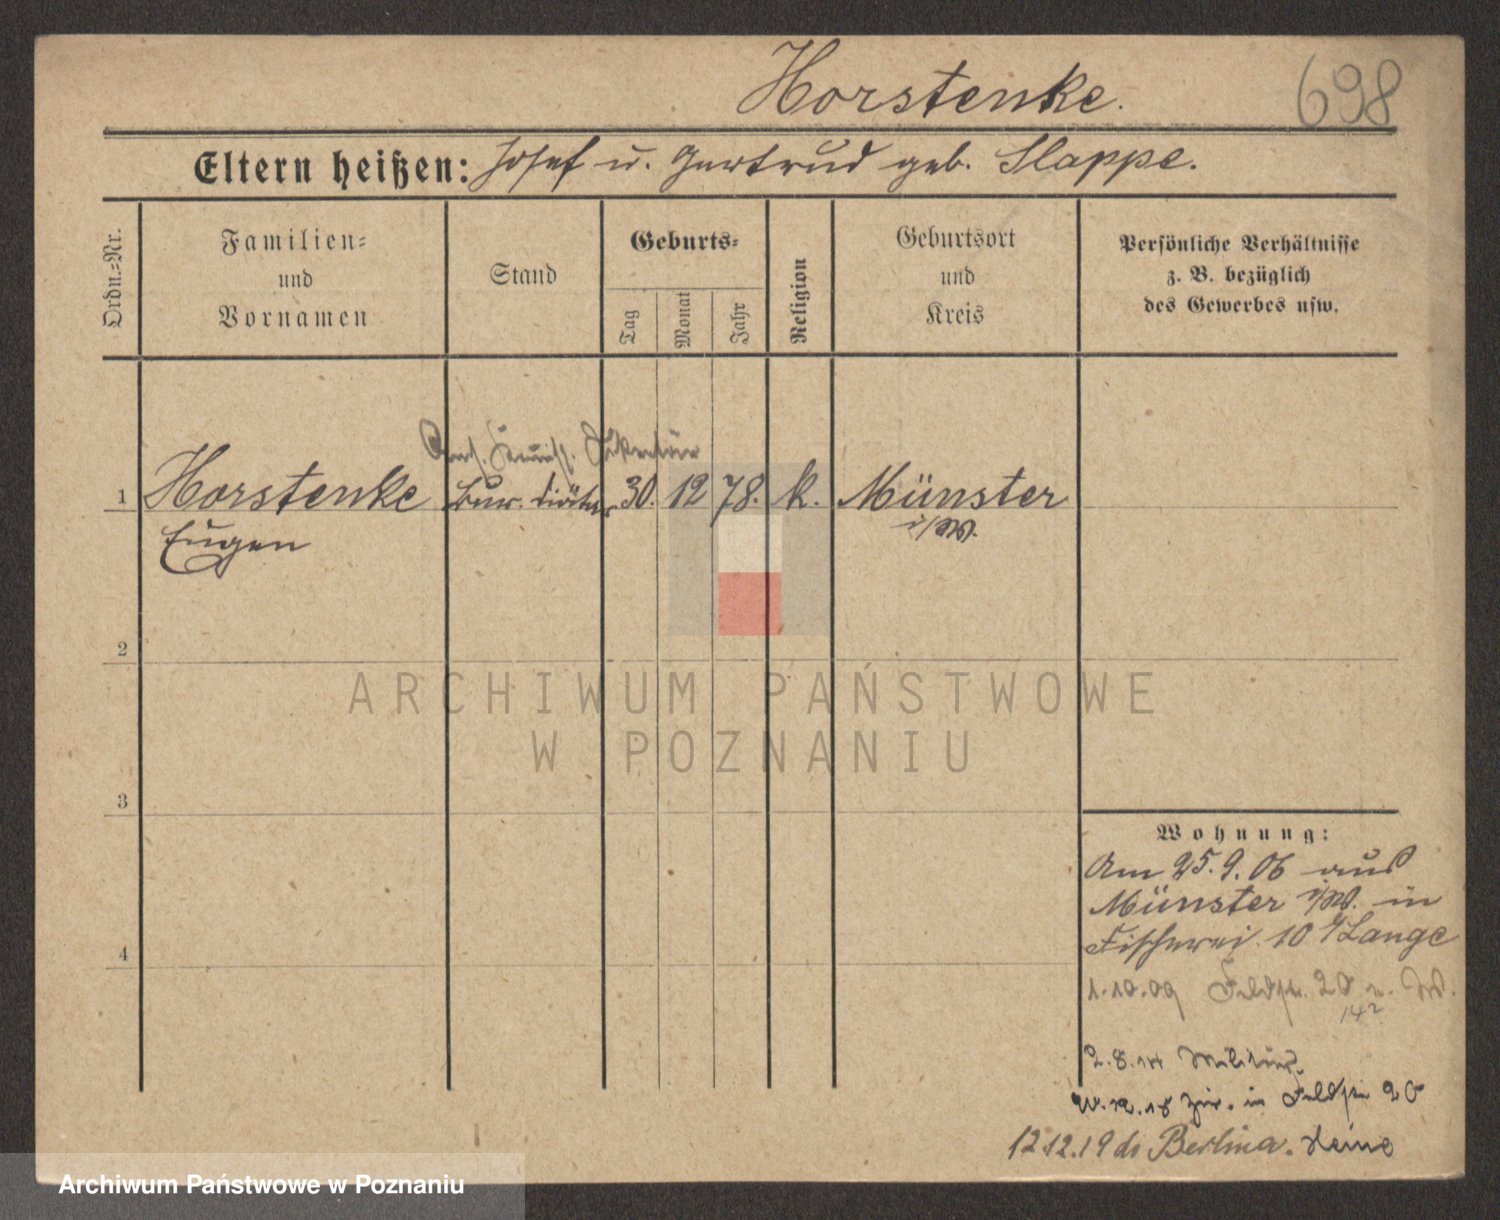 Horstenke.
698
Eltern heißen: Josef u. Gertrud geb. Slappe.
Ordn.=Nr.
Familien=
und
Vornamen
Stand
Geburts=
Tag
Monat
Jahr
Religion
Geburtsort
und
Kreis
Persönliche Verhältnisse
z. B. bezüglich
des Gewerbes usw.
Sekretär
1 Horstenke diätar 30. 12 78. k. Münster
i/W.
Eugen
2
3
4
ARCHIWUM PAŃSTWOWE
W POZNANIU
Wohnung:
Am 25.9.06 aus
Münster i/W. in
Fischerei 10 b/Lange
1.10.09 Feldstr. 20 n. W.
14²
2.8.14 Militär.
12.18 zur. in Feldstr 20
12.12.19 do Berlina. Heine
Archiwum Państwowe w Poznaniu